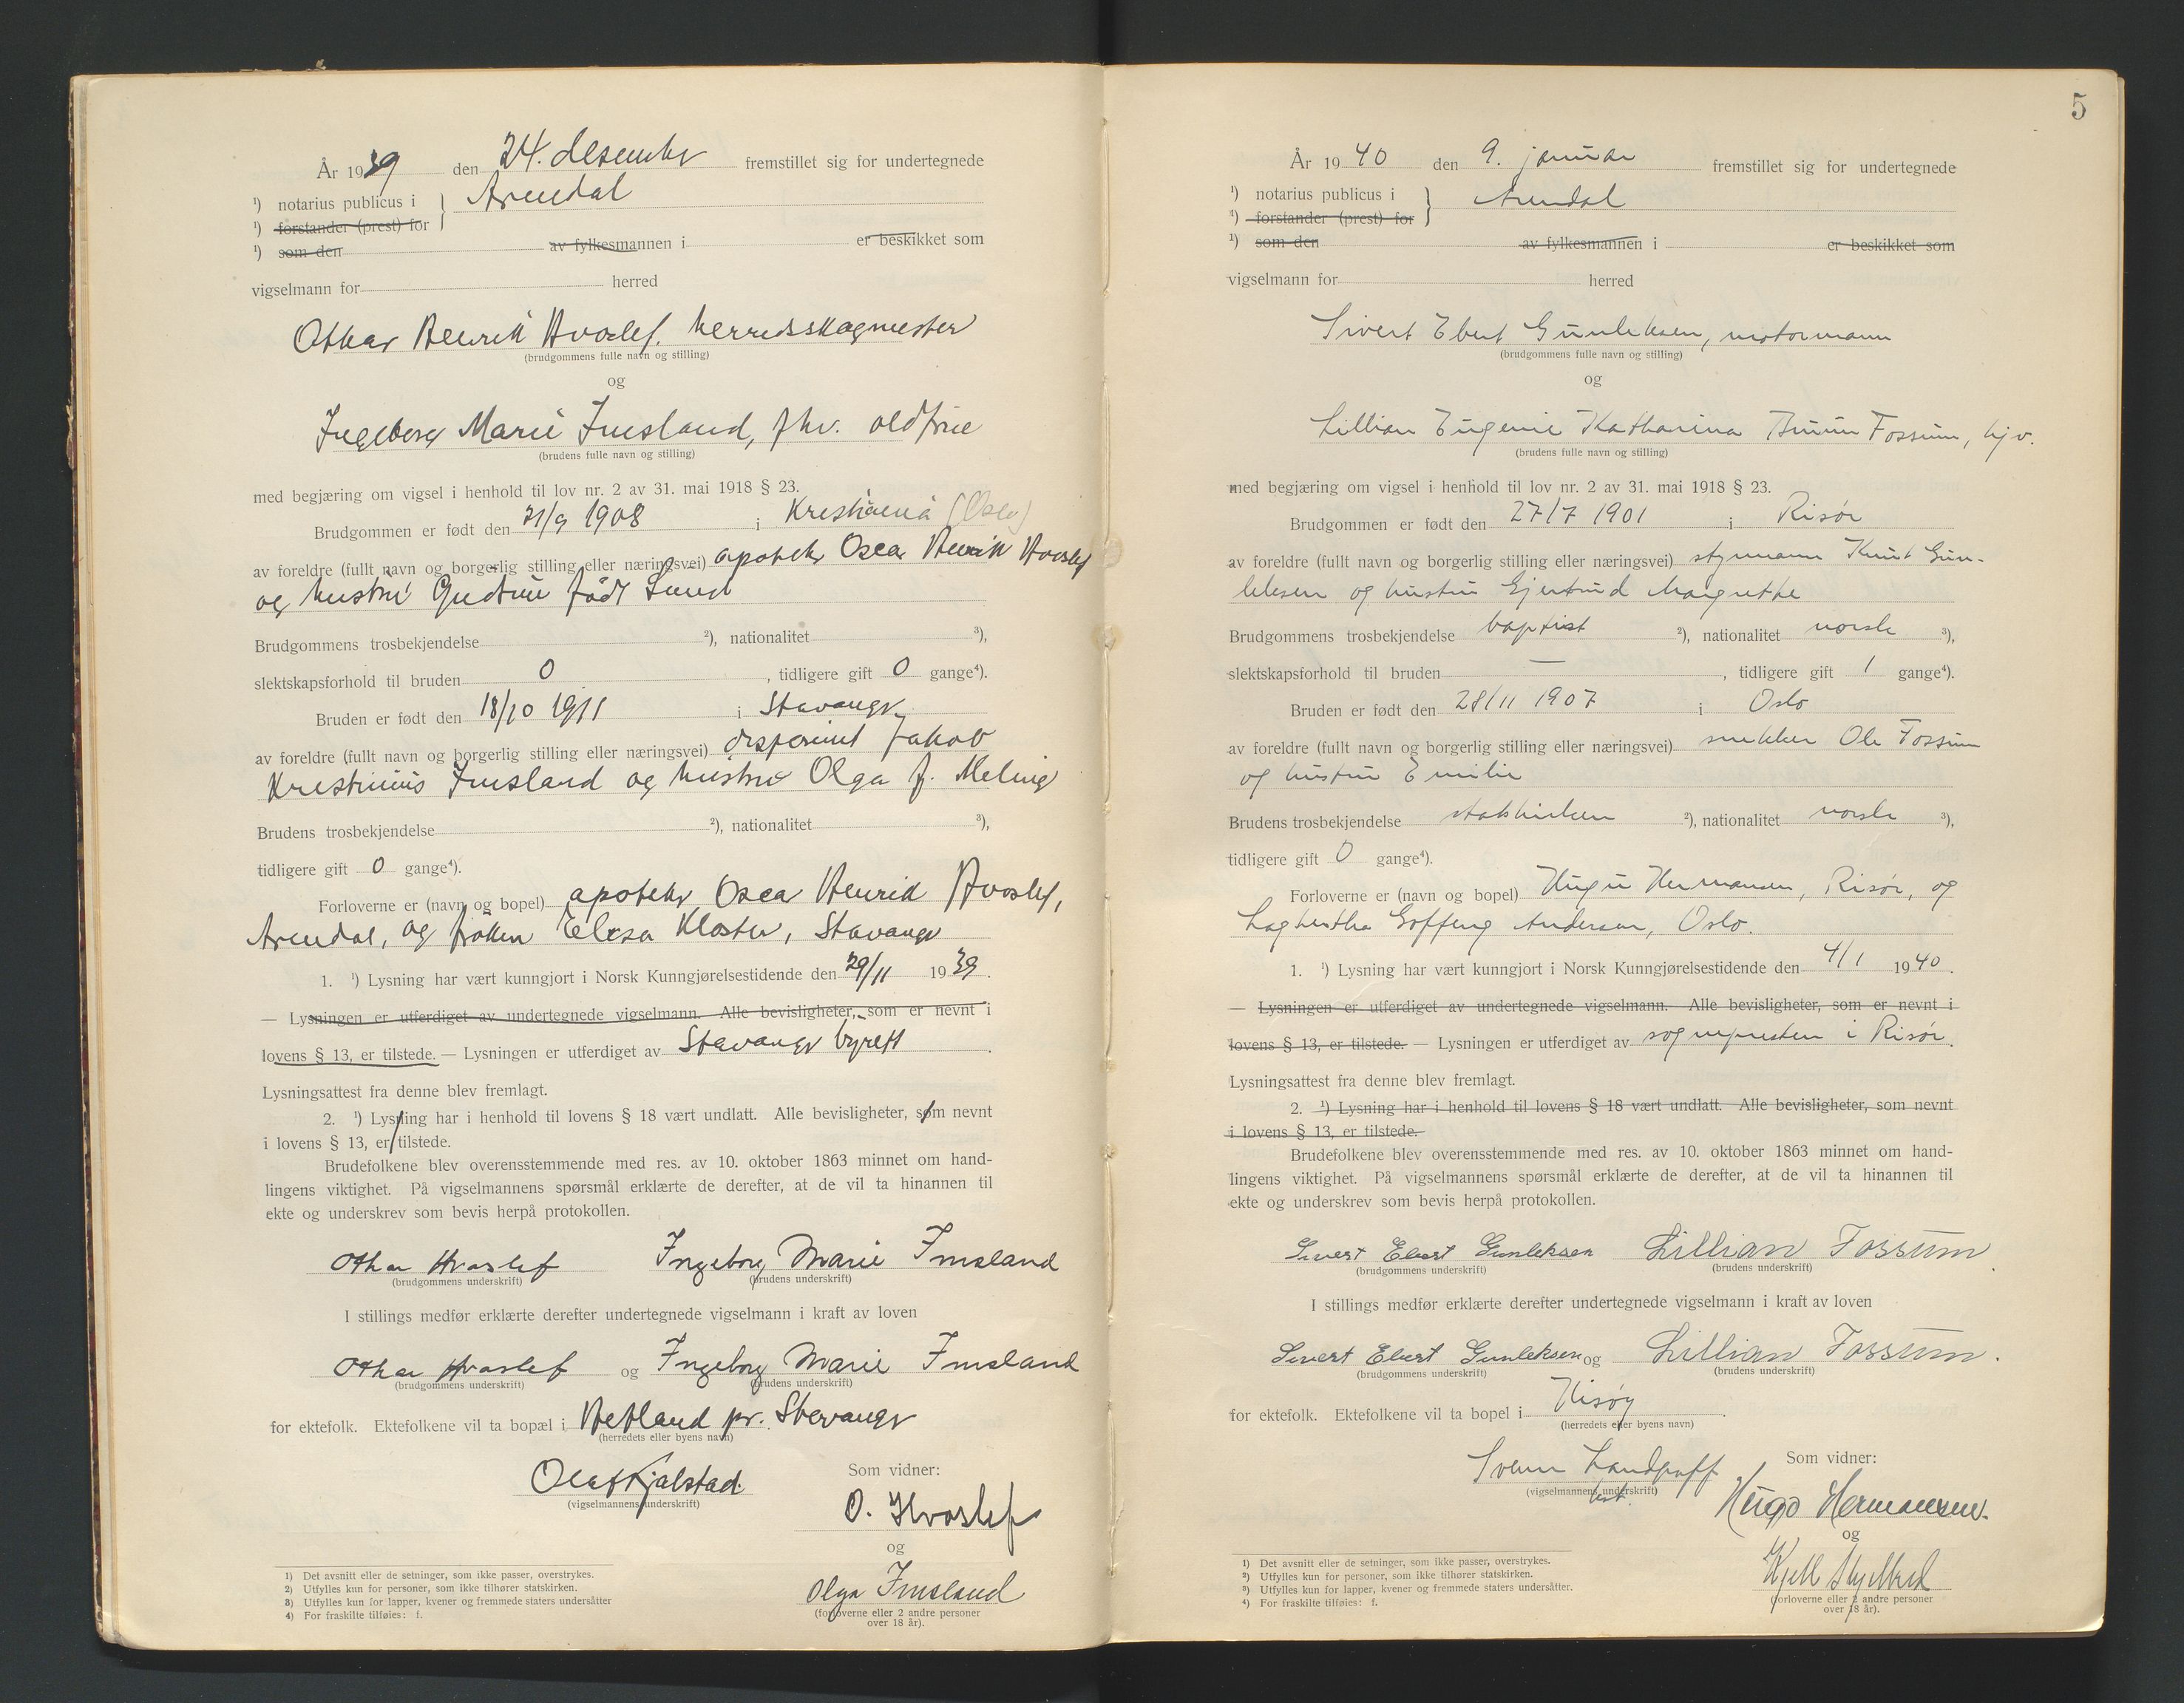 År 1939 den 24. desember fremstillet sig for undertegnede
¹) notarius publicus i } Arendal
¹) forstander (prest) for
¹) som den av fylkesmannen i er beskikket som
vigselmann for herred
Othar Henrik Hvoslef, herredsskogmester
(brudgommens fulle navn og stilling)
og
Ingeborg Marie Imsland, fhv. oldfrue
(brudens fulle navn og stilling)
med begjæring om vigsel i henhold til lov nr. 2 av 31. mai 1918 § 23.
Brudgommen er født den 21/9 1908 i Kristiania (Oslo)
av foreldre (fullt navn og borgerlig stilling eller næringsvei) apoteker Oscar Henrik Hvoslef
og hustru Gudrun født Lund
Brudgommens trosbekjendelse ²), nationalitet ³),
slektskapsforhold til bruden 0, tidligere gift 0 gange⁴).
Bruden er født den 18/10 1911 i Stavanger
av foreldre (fullt navn og borgerlig stilling eller næringsvei) disponent Jakob
Kristinius Imsland og hustru Olga f. Meling
Brudens trosbekjendelse ²), nationalitet ³),
tidligere gift 0 gange⁴).
Forloverne er (navn og bopel) apoteker Oscar Henrik Hvoslef,
Arendal, og frøken Elisa Kloster, Stavanger
1. ¹) Lysning har vært kunngjort i Norsk Kunngjørelsestidende den 29/11 1939.
— Lysningen er utferdiget av undertegnede vigselmann. Alle bevisligheter, som er nevnt i
lovens § 13, er tilstede. — Lysningen er utferdiget av Stavanger byrett.
Lysningsattest fra denne blev fremlagt.
2. ¹) Lysning har i henhold til lovens § 18 vært undlatt. Alle bevisligheter, som nevnt
i lovens § 13, er tilstede.
Brudefolkene blev overensstemmende med res. av 10. oktober 1863 minnet om hand-
lingens viktighet. På vigselmannens spørsmål erklærte de derefter, at de vil ta hinannen til
ekte og underskrev som bevis herpå protokollen.
Othar Hvoslef Ingeborg Marie Imsland
(brudgommens underskrift) (brudens underskrift)
I stillings medfør erklærte derefter undertegnede vigselmann i kraft av loven
Othar Hvoslef og Ingeborg Marie Imsland
(brudgommens underskrift) (brudens underskrift)
for ektefolk. Ektefolkene vil ta bopæl i Hetland pr. Stavanger
(herredets eller byens navn)
Olaf Kjalstad.
(vigselmannens underskrift)
Som vidner:
O. Hvoslef
og
Olga Imsland
(forloverne eller 2 andre personer
over 18 år).
1) Det avsnitt eller de setninger, som ikke passer, overstrykes.
2) Utfylles kun for personer, som ikke tilhører statskirken.
3) Utfylles kun for lapper, kvener og fremmede staters undersåtter
4) For fraskilte tilføies: f.
5
År 1940 den 9. januar fremstillet sig for undertegnede
¹) notarius publicus i } Arendal
¹) forstander (prest) for
¹) som den av fylkesmannen i er beskikket som
vigselmann for herred
Sivert Ebert Gunleksen, motormann
(brudgommens fulle navn og stilling)
og
Lillian Eugenie Katharina Bruun Fossum, hjv.
(brudens fulle navn og stilling)
med begjæring om vigsel i henhold til lov nr. 2 av 31. mai 1918 § 23.
Brudgommen er født den 27/7 1901 i Risør
av foreldre (fullt navn og borgerlig stilling eller næringsvei) styrmann Knut Gun-
leksen og hustru Gjertrud Margrethe
Brudgommens trosbekjendelse baptist ²), nationalitet norsk ³),
slektskapsforhold til bruden —, tidligere gift 1 gange⁴).
Bruden er født den 28/11 1907 i Oslo
av foreldre (fullt navn og borgerlig stilling eller næringsvei) snekker Ole Fossum
og hustru Emilie
Brudens trosbekjendelse statskirken ²), nationalitet norsk ³),
tidligere gift 0 gange⁴).
Forloverne er (navn og bopel) Hugo Hermansen, Risør, og
Laghertha Goffeng Andersen, Oslo.
1. ¹) Lysning har vært kunngjort i Norsk Kunngjørelsestidende den 4/1 1940.
— Lysningen er utferdiget av undertegnede vigselmann. Alle bevisligheter, som er nevnt i
lovens § 13, er tilstede. — Lysningen er utferdiget av sognepresten i Risør.
Lysningsattest fra denne blev fremlagt.
2. ¹) Lysning har i henhold til lovens § 18 vært undlatt. Alle bevisligheter, som nevnt
i lovens § 13, er tilstede.
Brudefolkene blev overensstemmende med res. av 10. oktober 1863 minnet om hand-
lingens viktighet. På vigselmannens spørsmål erklærte de derefter, at de vil ta hinannen til
ekte og underskrev som bevis herpå protokollen.
Sivert Ebert Gunleksen Lillian Fossum.
(brudgommens underskrift) (brudens underskrift)
I stillings medfør erklærte derefter undertegnede vigselmann i kraft av loven
Sivert Ebert Gunleksen og Lillian Fossum.
(brudgommens underskrift) (brudens underskrift)
for ektefolk. Ektefolkene vil ta bopel i Hisøy.
(herredets eller byens navn)
Svenn
(vigselmannens underskrift)
Som vidner:
Hugo Hermansen.
og
Kjell
(forloverne eller 2 andre personer
over 18 år).
1) Det avsnitt eller de setninger, som ikke passer, overstrykes.
2) Utfylles kun for personer, som ikke tilhører statskirken.
3) Utfylles kun for lapper, kvener og fremmede staters undersåtter.
4) For fraskilte tilføies: f.